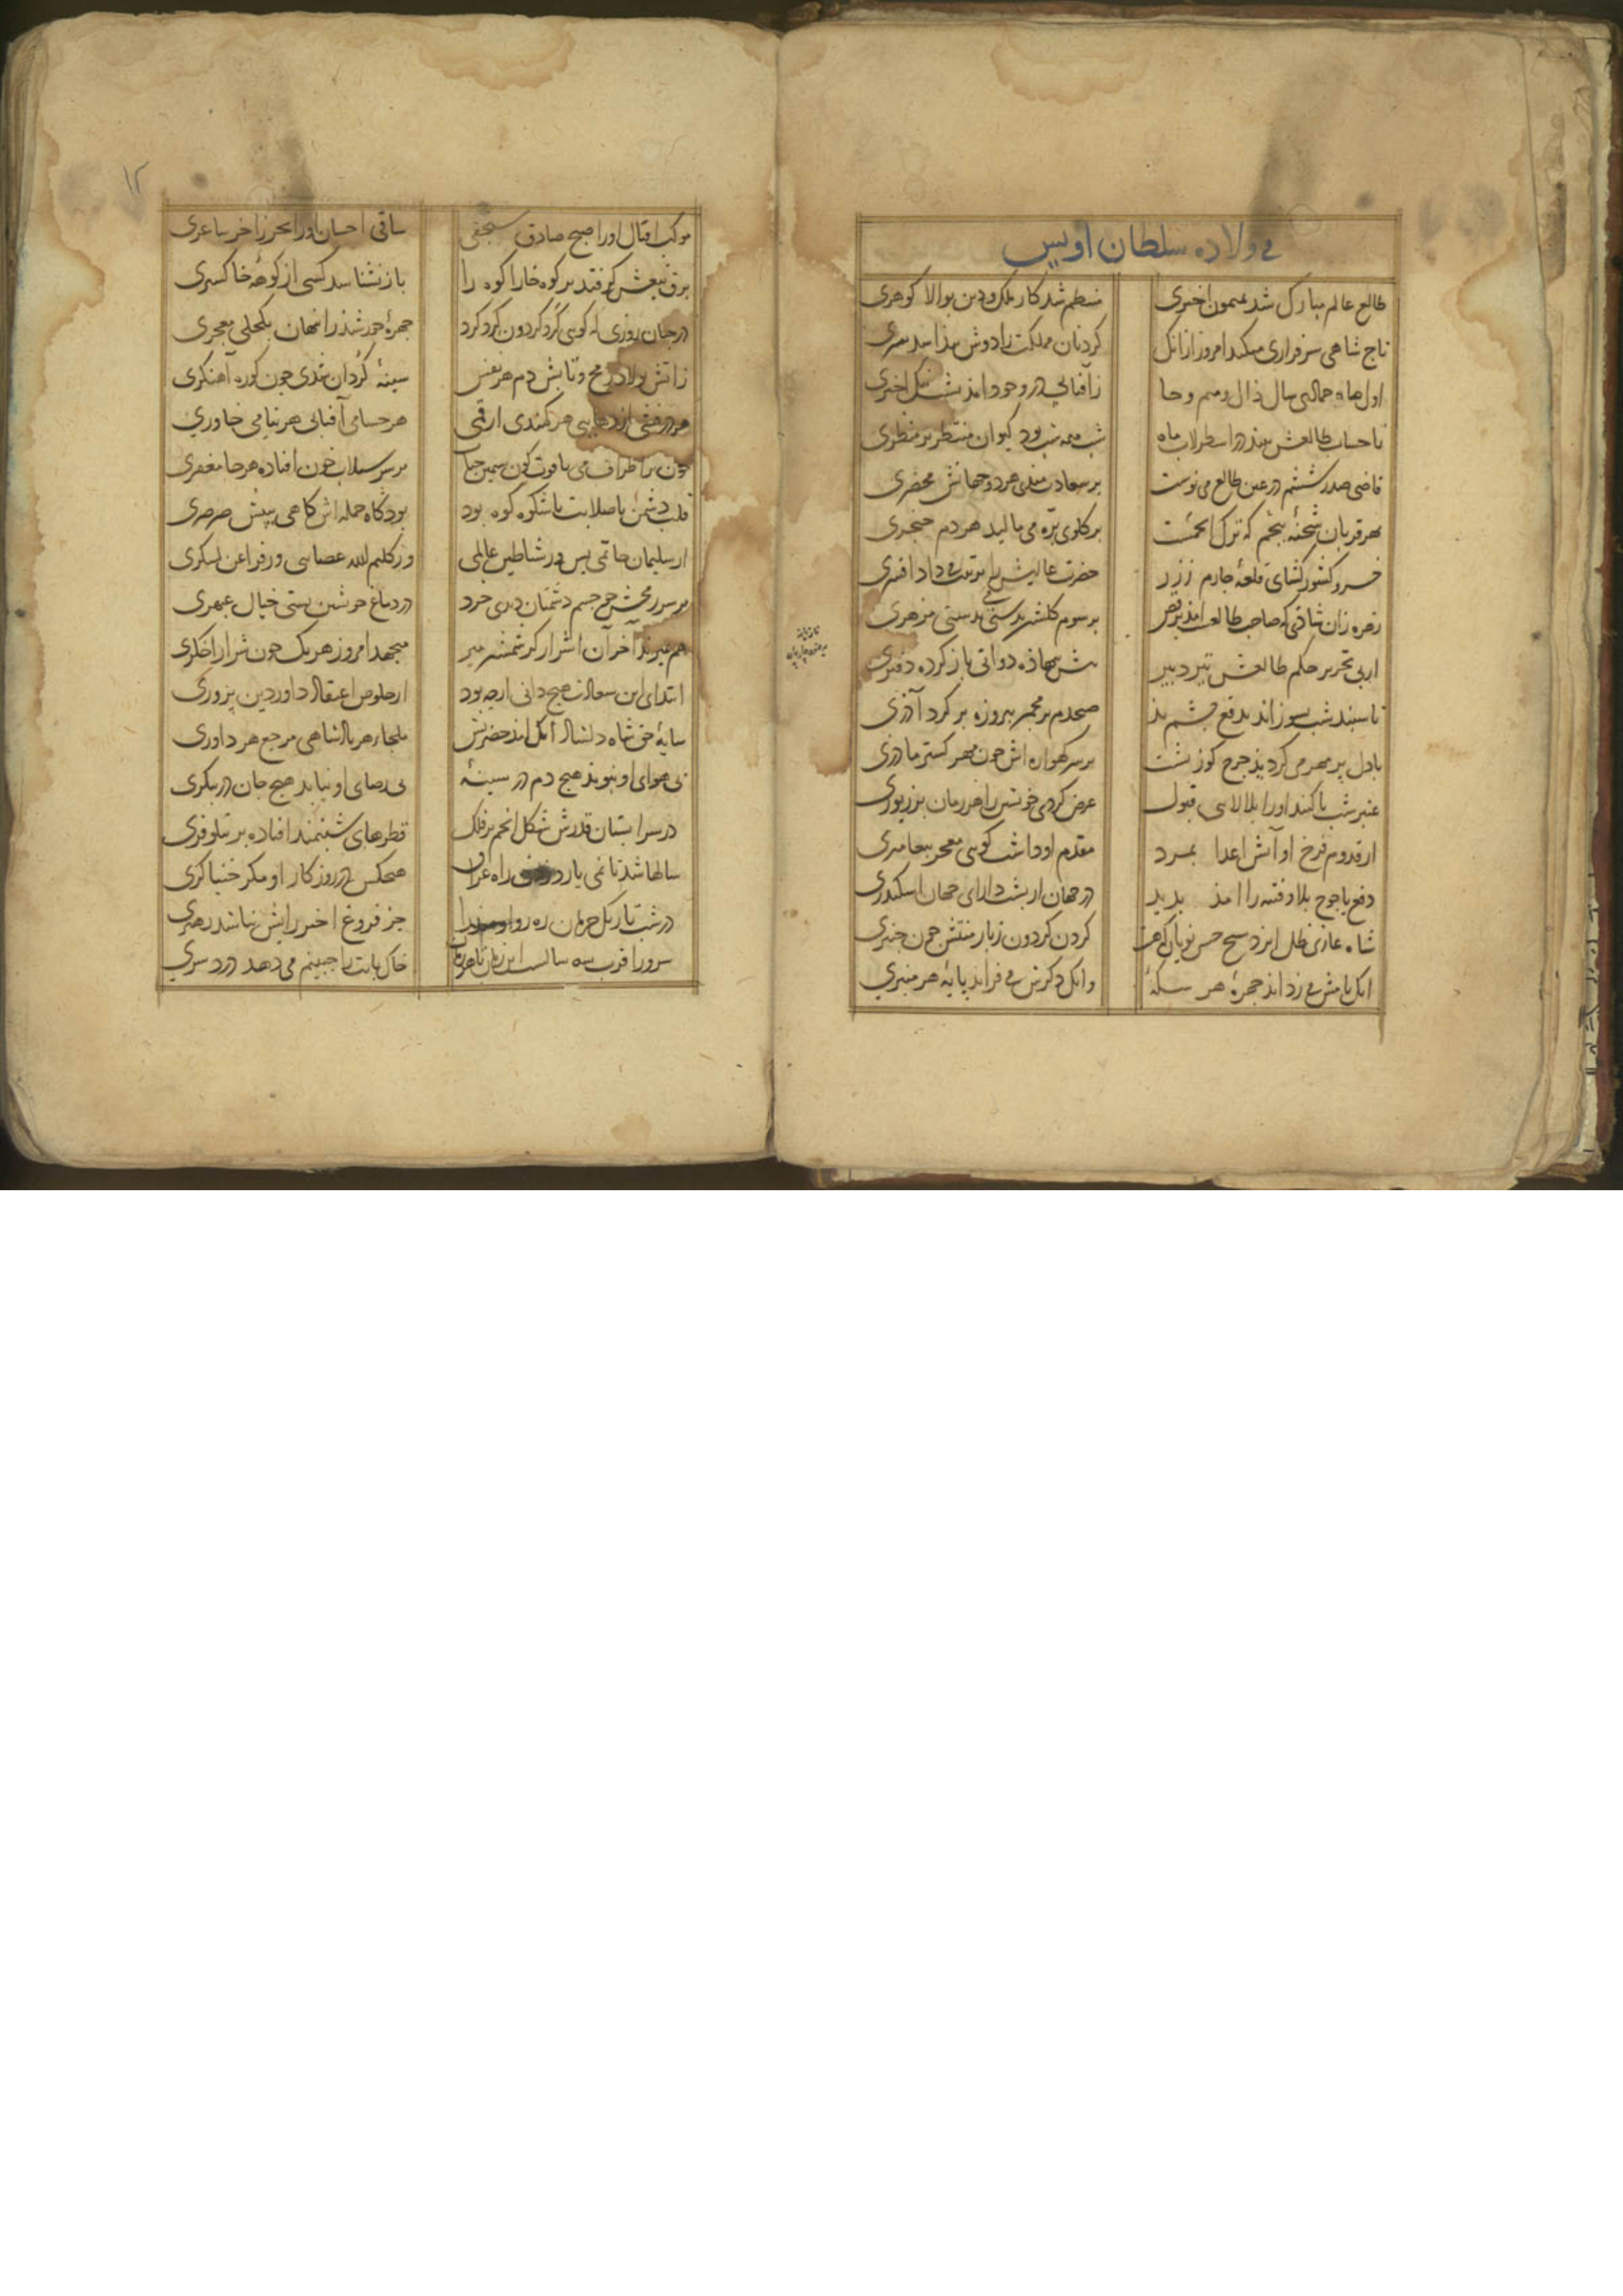 فی ولاده سلطان اویس
طالع عالم مبارک شد بمیمون اختری منتظم شد کار ملک و دین بوالا کوهری
تاج شاهی سرفرازی میکند امروز ازانک کردنان مملکت را دوش بیذا شد سری
اول ماه جمالتی سال ذال و میم و حا ز آفتابی در وجود امذ بشکل اختری
تا حساب طالعش بیند در اسطرلاب ماه شب همه شب بود کیوان منتظر بر منظری
قاضی صدر ششم در عین طالع می نوشت بر سعادت منبی هر دو جهانش محضری
بهر قربان شحنه پنجم که ترک انجمست بر کلوی بره می مالید هر دم خنجری
خسرو کشور کشای قلعه چارم ز زر حضرت عالیش را ترتیب می داد افسری
زهره زان شادی که صاحب طالعست امذ برقص بر سوم کلشن بدستی بدستی مزهری
از پی تحریر حکم طالعش تیر دبیر پیش بنهاذه دواتی باز کرده دفتری
تا سپند شب بسوزاند بدفع چشم بذ صبحدم بر مجمر پیروزه بر کرد آذری
با دل پر مهر می کردید چرخ کوز پشت بر سر کهواره اش چون مهر کستر ماذری
عنبر شب تا کند او را بلالایی قبول عرض کردی خویشتن را هر زمان بر زیوری
از قدوم فرخ او آتش اعدا بمرد مقدم او داشت کویی معجز پیغامبری
دفع یاجوج بلا و فتنه را امذ بدید در جهان از پشت دارای جهان اسکندری
شاه غازی ظل ایزد شیخ حسن نویان که هست کردن کردون ز بار منتش چون چنبری
انک نامش می زداند چهره هر سکه وانک ذکرش می فزاید پایه هر منبری
۱۲
موکب اقبال او را صبح صادق سنجقی ساقی احسان او را بحر زاخر ساغری
برق تیغش کر فتد بر کوه خارا کوه را باز نشناسد کسی از کوهه خاکستری
در چنان روزی که کویی کرد کردون کرد کرد چهره خورشید را نهان بکحلی معجری
زاتش پولاد رمح و تابش دم هر نفس سینه کردان شدی چون کوره آهنکری
هر درفشی اژدهایی هر کمندی ارقمی هر حسامی آفتابی هر نیامی خاوری
بر سر سیلاب خون افتاده هر جا مغفری
قلب دشمن با صلابت با شکوه کوه بود بود کاه حمله اش کاهی به پیش صرصری
از سلیمان خاتمی بس ور شیاطین عالمی وز کلیم الله عصایی ور فراعن لشکری
بر سر رمحش چو جسم دشمنان دیدی خرد در دماغ خویشتن بستی خیال عبهری
هم بمیرند آخر آن اشرار کز شمشیر میر میجهد امروز هر یک چون شرار از اخکری
ابتدای این سعادت هیچ دانی از چه بود از خلوص اعتقاد داور دین پروری
سایه حق شاه دلشاد آنک امذ حضرتش ملجا هر پادشاهی مرجع هر داوری
بی هوای او نبوند هیچ دم در سینه بی رضای او نیابد هیچ جان در پیکری
در سرابستان قدرش شکل انجم بر فلک قطرهای شبنمند افتاده بر نیلوفری
سالها شد تا نمی یارد زدن راه عراق هیچکس در روزکار او مکر خنیاکری
در شب تاریک حرمان ره روان جز فروغ اختر رایش نباشد رهبری
سرورا قرب سه سالست این زمان تا هر زمان خاک پایت را جبینم می دهد درد سری